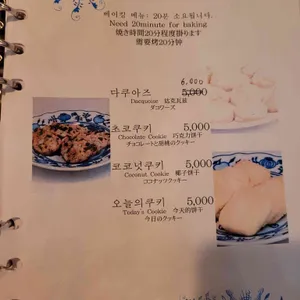 베이킹 메뉴: 20분 소요됩니다.
Need 20minute for baking
焼き時間20分程度掛ります
需要烤20分钟
6,000
다쿠아즈 5,000
Dacquoise 达克瓦兹
ダコワーズ
초코쿠키 5,000
Chocolate Cookie 巧克力饼干
チョコレートと胡桃のクッキー
코코넛쿠키 5,000
Coconut Cookie 椰子饼干
ココナッツクッキー
오늘의쿠키 5,000
Today's Cookie 今天的饼干
今日のクッキー